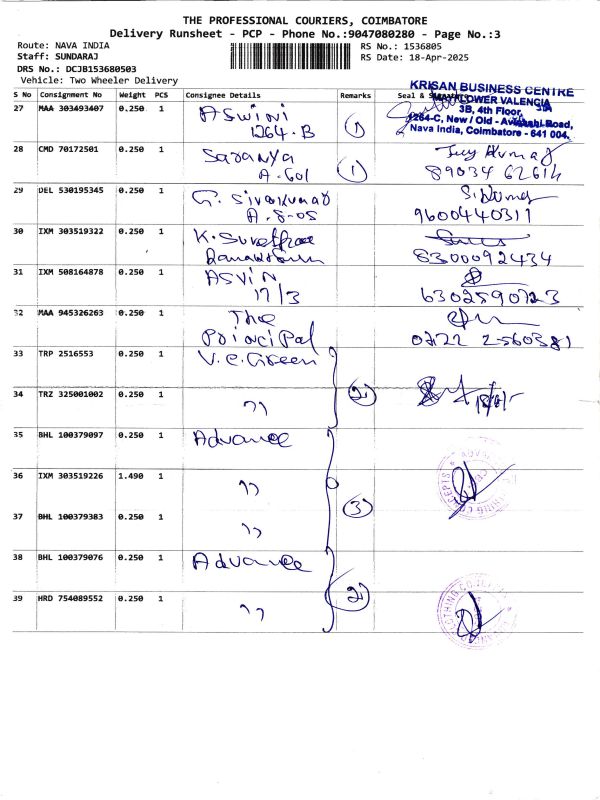 THE PROFESSIONAL COURIERS, COIMBATORE
Delivery Runsheet - PCP - Phone No.:9047080280 - Page No.:3
Route: NAVA INDIA
RS No.: 1536805
Staff: SUNDARAJ
RS Date: 18-Apr-2025
DRS No.: DCJB153680503
Vehicle: Two Wheeler Delivery
S No Consignment No Weight PCS Consignee Details Remarks Seal &
KRISAN BUSINESS CENTRE
MAYFLOWER VALENCIA
3B, 4th Floor,
1264-C, New / Old - Avanashi Road,
Nava India, Coimbatore - 641 004.
27 MAA 303493407 0.250 1 ASWINI 1
1264-B
28 CMD 70172501 0.250 1 Saranya 1
A-601 89034 62614
29 DEL 530195345 0.250 1 G. Sivakumar
A-8-05 9600440311
30 IXM 303519322 0.250 1 K.
8300092434
31 IXM 508164878 0.250 1 ASVIN
17/3 6302590723
32 MAA 945326263 0.250 1 The
Principal 0422 2560381
33 TRP 2516553 0.250 1 V.C. Green
34 TRZ 325001002 0.250 1 " 2
35 BHL 100379097 0.250 1 Advance
36 IXM 303519226 1.490 1 "
3
37 BHL 100379383 0.250 1 "
38 BHL 100379076 0.250 1 Advance
39 HRD 754089552 0.250 1 " 2